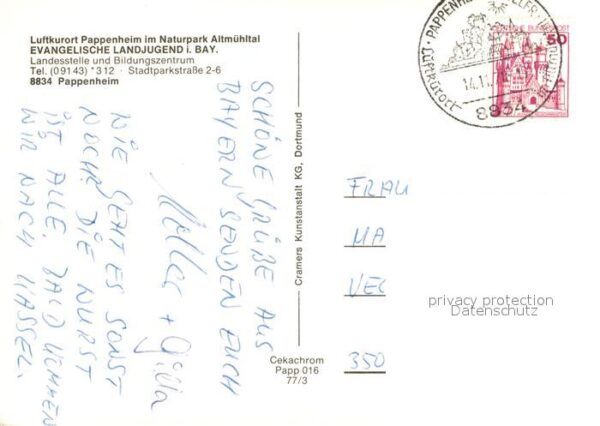 Luftkurort Pappenheim im Naturpark Altmühltal
EVANGELISCHE LANDJUGEND i. BAY.
Landesstelle und Bildungszentrum
Tel. (09143) *312 · Stadtparkstraße 2-6
8834 Pappenheim
SCHÖNE GRÜßE AUS
BAYERN SENDEN EUCH
WIE GEHT ES SONST
NOCH? DIE WURST
IST ALLE. BALD KOMMEN
WIR NACH KASSEL.
Cramers Kunstanstalt KG, Dortmund
Cekachrom
Papp 016
77/3
50
PAPPENHEIM
Luftkurort
8834
FRAU
MA
350
privacy protection
Datenschutz